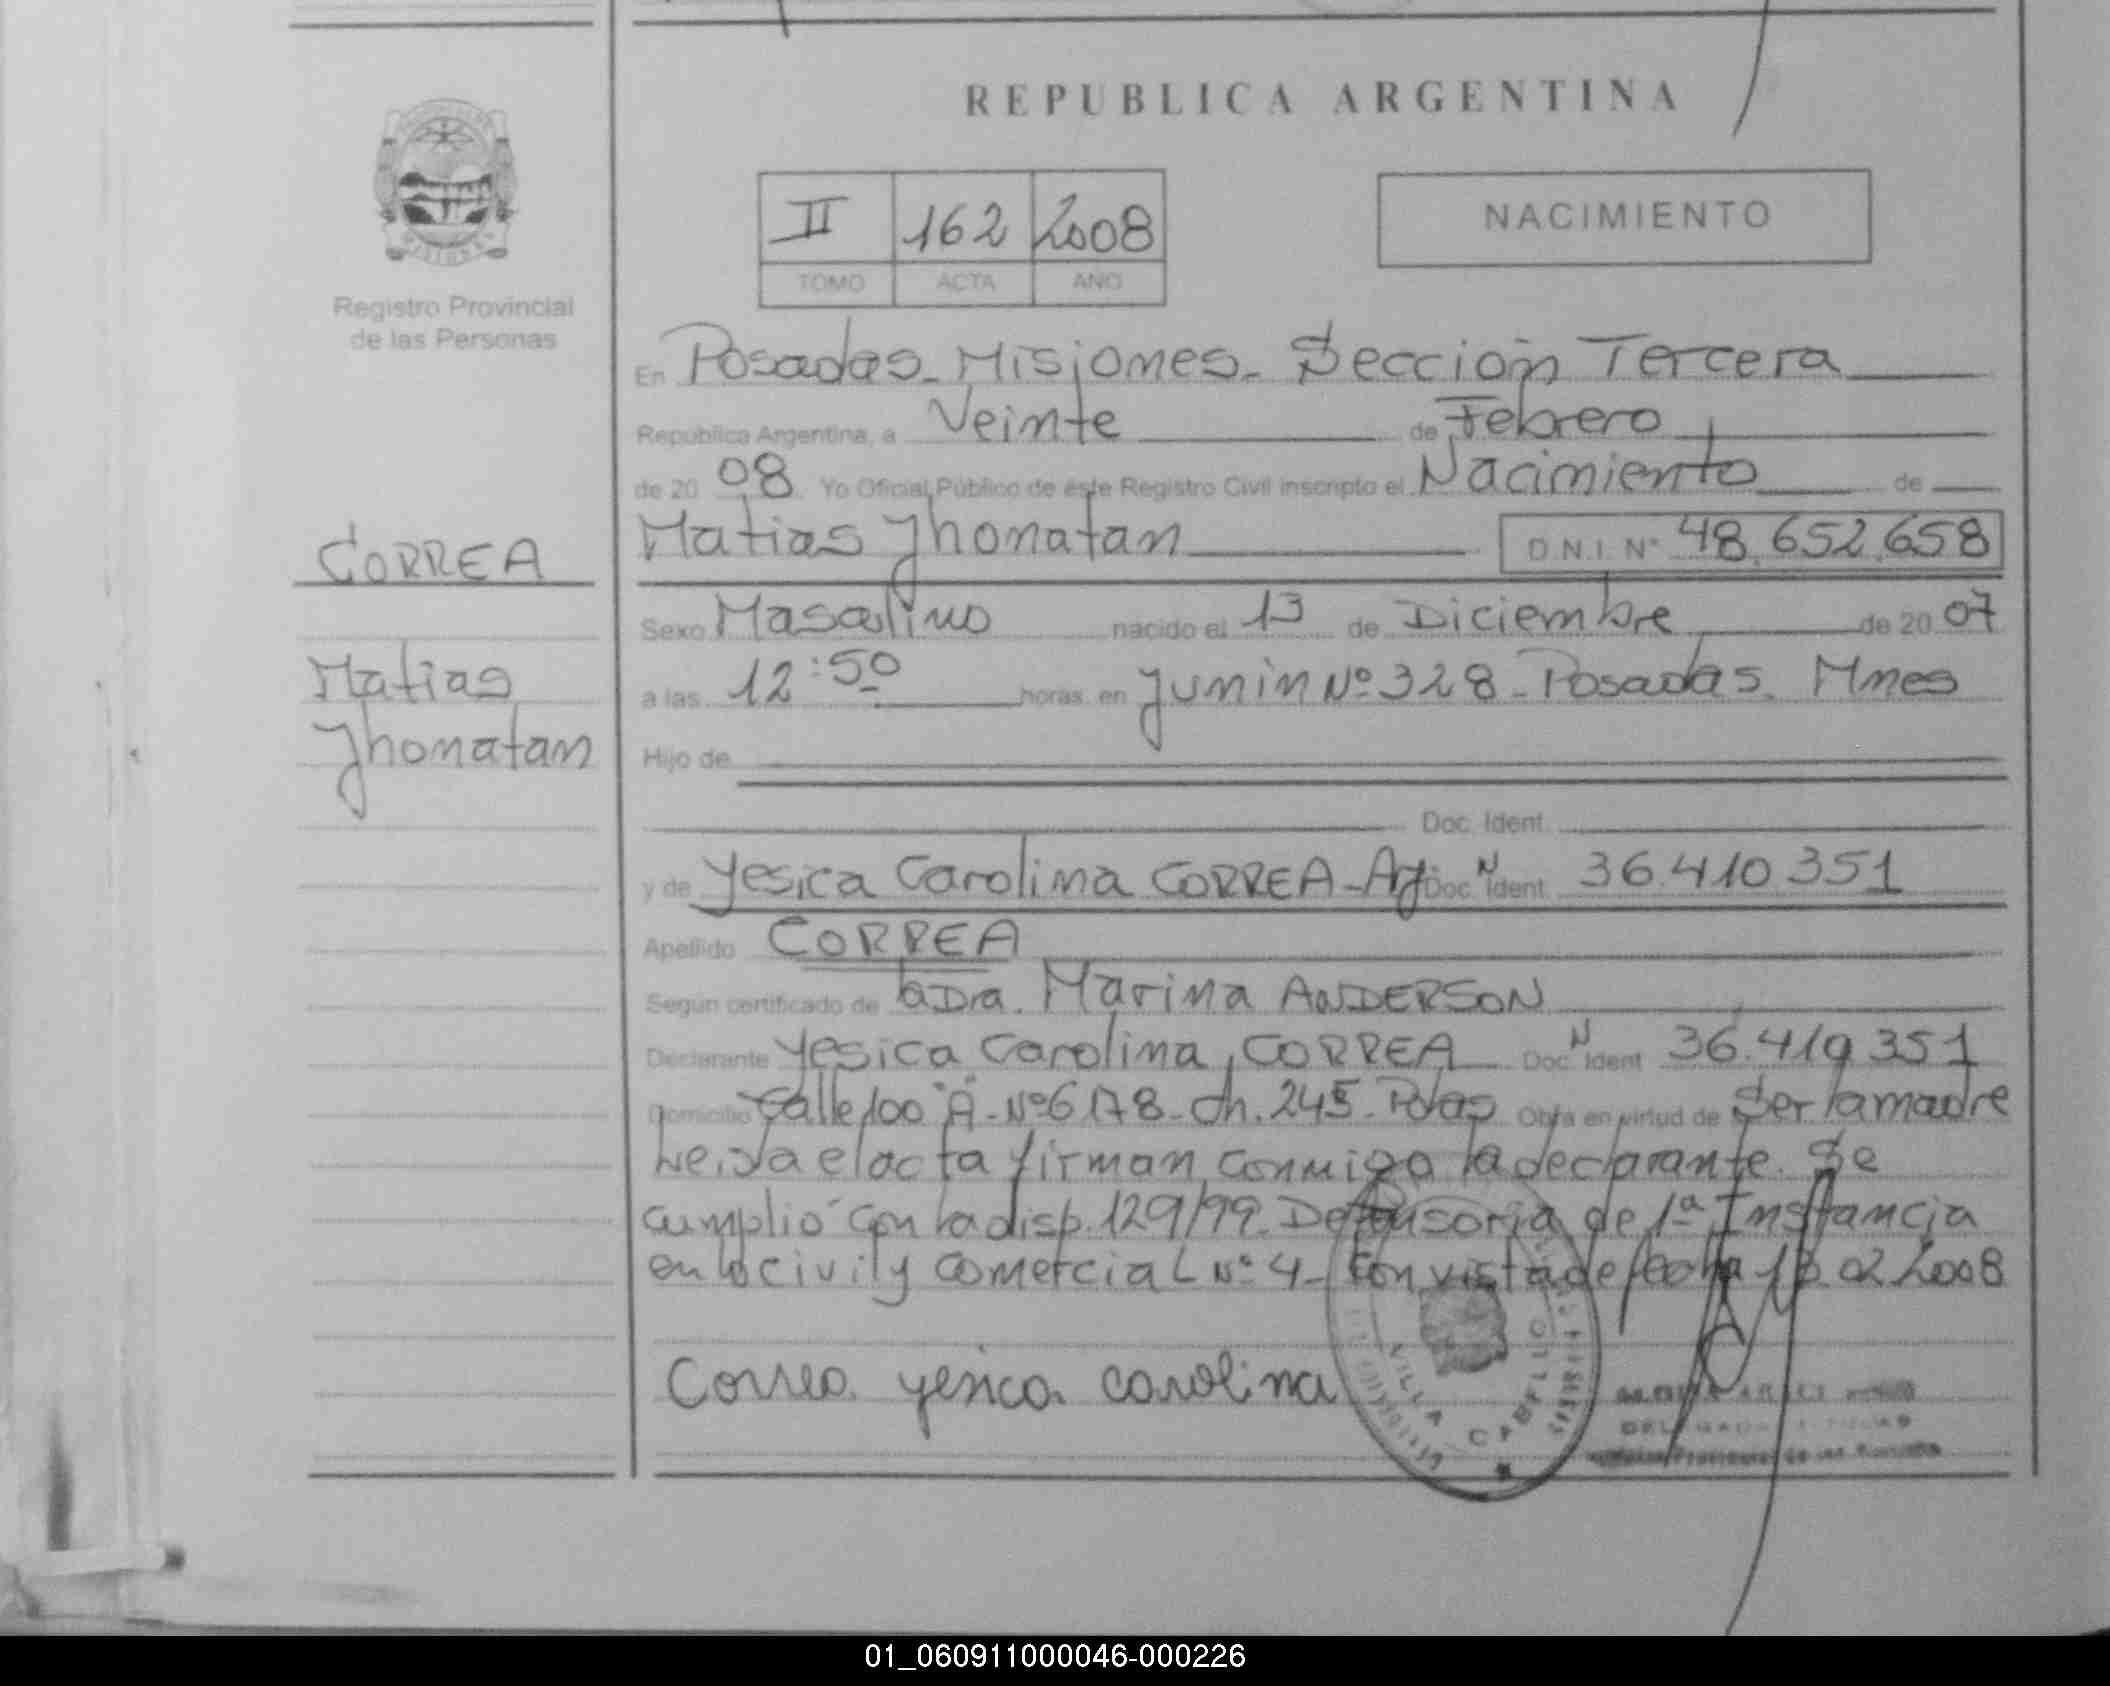 REPUBLICA ARGENTINA
II 162 2008
TOMO ACTA AÑO
NACIMIENTO
Registro Provincial
de las Personas
En Posadas - Misiones - Sección Tercera
República Argentina, a Veinte de Febrero
de 2008 Yo Oficial Público de éste Registro Civil inscripto el Nacimiento de
Matias Jhonatan D.N.I. Nº 48.652.658
CORREA
Matias
Jhonatan
Sexo Masculino nacido el 13 de Diciembre de 2007
a las 12:50 horas en Junin Nº 328 - Posadas. Mnes
Hijo de
Doc. Ident.
y de Yesica Carolina CORREA - Arg Doc. N Ident. 36.410.351
Apellido CORREA
Según certificado de la Dra. Marina ANDERSON
Declarante Yesica Carolina CORREA Doc. N Ident 36.410.351
Domicilio Calle 100 "A" - Nº 6178 - Ch. 245 - Pdas Obra en virtud de Ser la madre
Leida el acta firman conmigo la declarante. Se
cumplió con la disp. 129/99. Defensoria de 1ª Instancia
en lo civil y comercial Nº 4 - con vista de fecha 02 2008
Correa yesica carolina
VILLA CABELLO
01_060911000046-000226